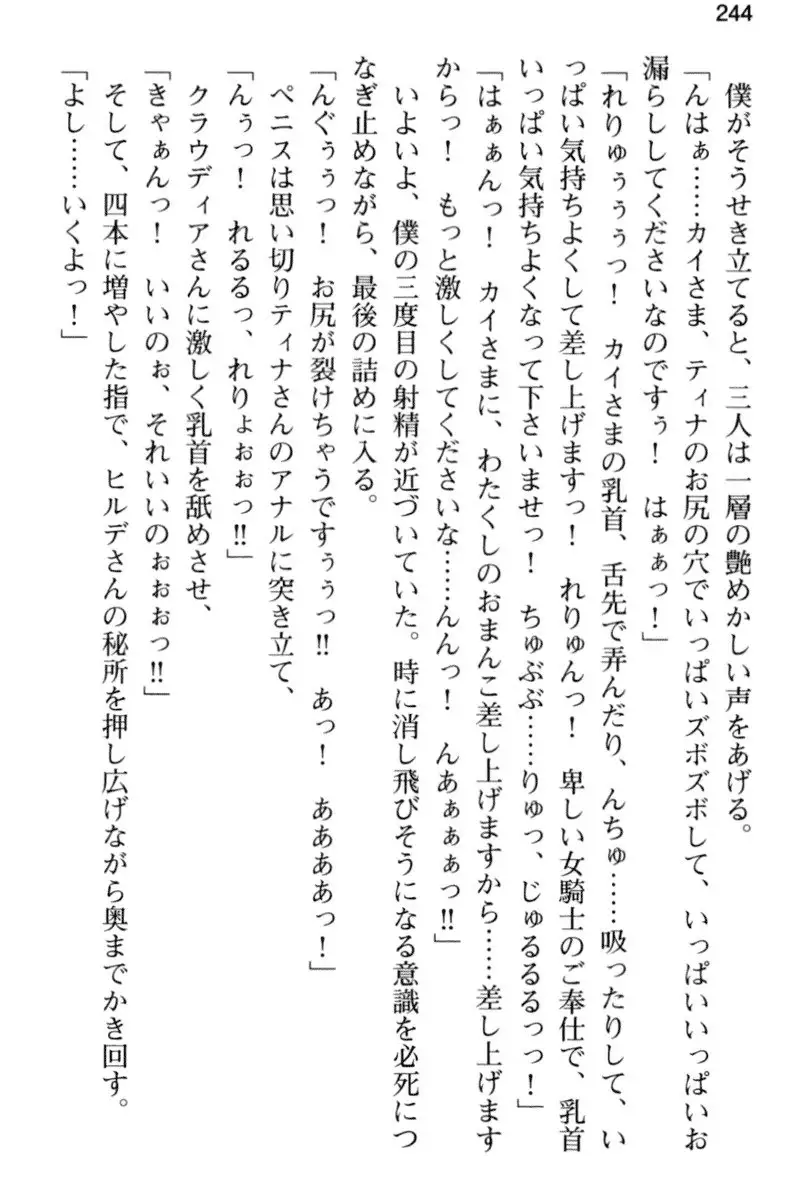 244
僕がそうせき立てると、三人は一層の艶めかしい声をあげる。
「んはぁ……カイさま、ティナのお尻の穴でいっぱいズボズボして、いっぱいいっぱいお
漏らししてくださいなのですぅ！　はぁぁっ！」
「れりゅぅぅぅっ！　カイさまの乳首、舌先で弄んだり、んちゅ……吸ったりして、い
っぱい気持ちよくして差し上げますっ！　れりゅんっ！　卑しい女騎士のご奉仕で、乳首
いっぱい気持ちよくなって下さいませっ！　ちゅぶぶ……りゅっ、じゅるるるっっ！」
「はぁぁんっ！　カイさまに、わたくしのおまんこ差し上げますから……差し上げます
からっ！　もっと激しくしてくださいな……んんっ！　んあぁぁぁっ‼」
いよいよ、僕の三度目の射精が近づいていた。時に消し飛びそうになる意識を必死につ
なぎ止めながら、最後の詰めに入る。
「んぐぅぅっ！　お尻が裂けちゃうですぅぅっ‼　あっ！　ああああっ！」
ペニスは思い切りティナさんのアナルに突き立て、
「んぅっ！　れるるっ、れりょぉぉっ‼」
クラウディアさんに激しく乳首を舐めさせ、
「きゃぁんっ！　いいのぉ、それいいのぉぉぉっ‼」
そして、四本に増やした指で、ヒルデさんの秘所を押し広げながら奥までかき回す。
「よし……いくよっ！」